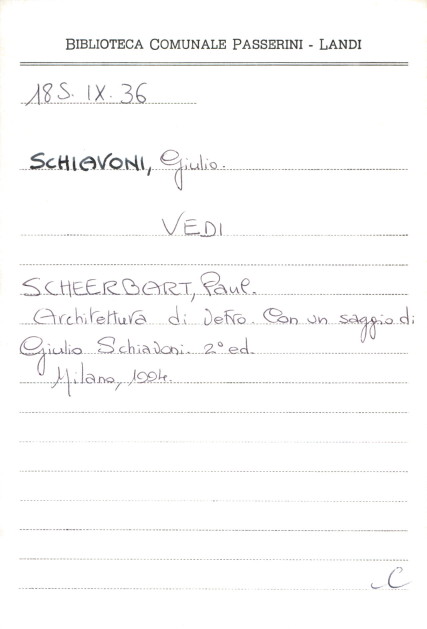 BIBLIOTECA COMUNALE PASSERINI - LANDI
18S. IX. 36
SCHIAVONI, Giulio.
VEDI
SCHEERBART, Paul.
Architettura di vetro. Con un saggio di
Giulio Schiavoni. 2º ed.
Milano, 1994.
C